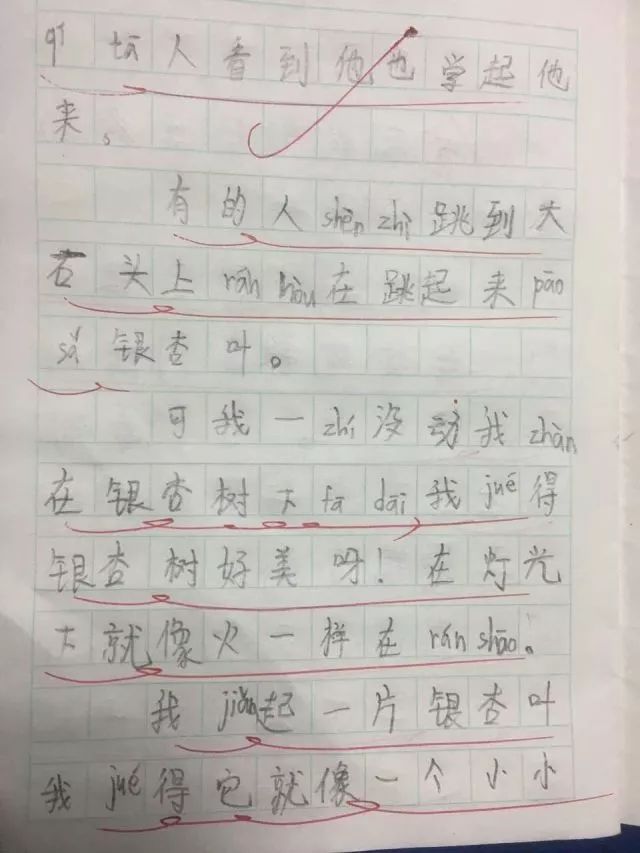 qí tā人看到他也学起他
来。
有的人shèn zhì跳到大
石头上rán hòu在跳起来pāo
sǎ银杏叶。
可我一zhí没动我zhàn
在银杏树下fā dāi我jué得
银杏树好美呀!在灯光
下就像火一样在rán shāo。
我jiǎn起一片银杏叶
我jué得它就像一个小小